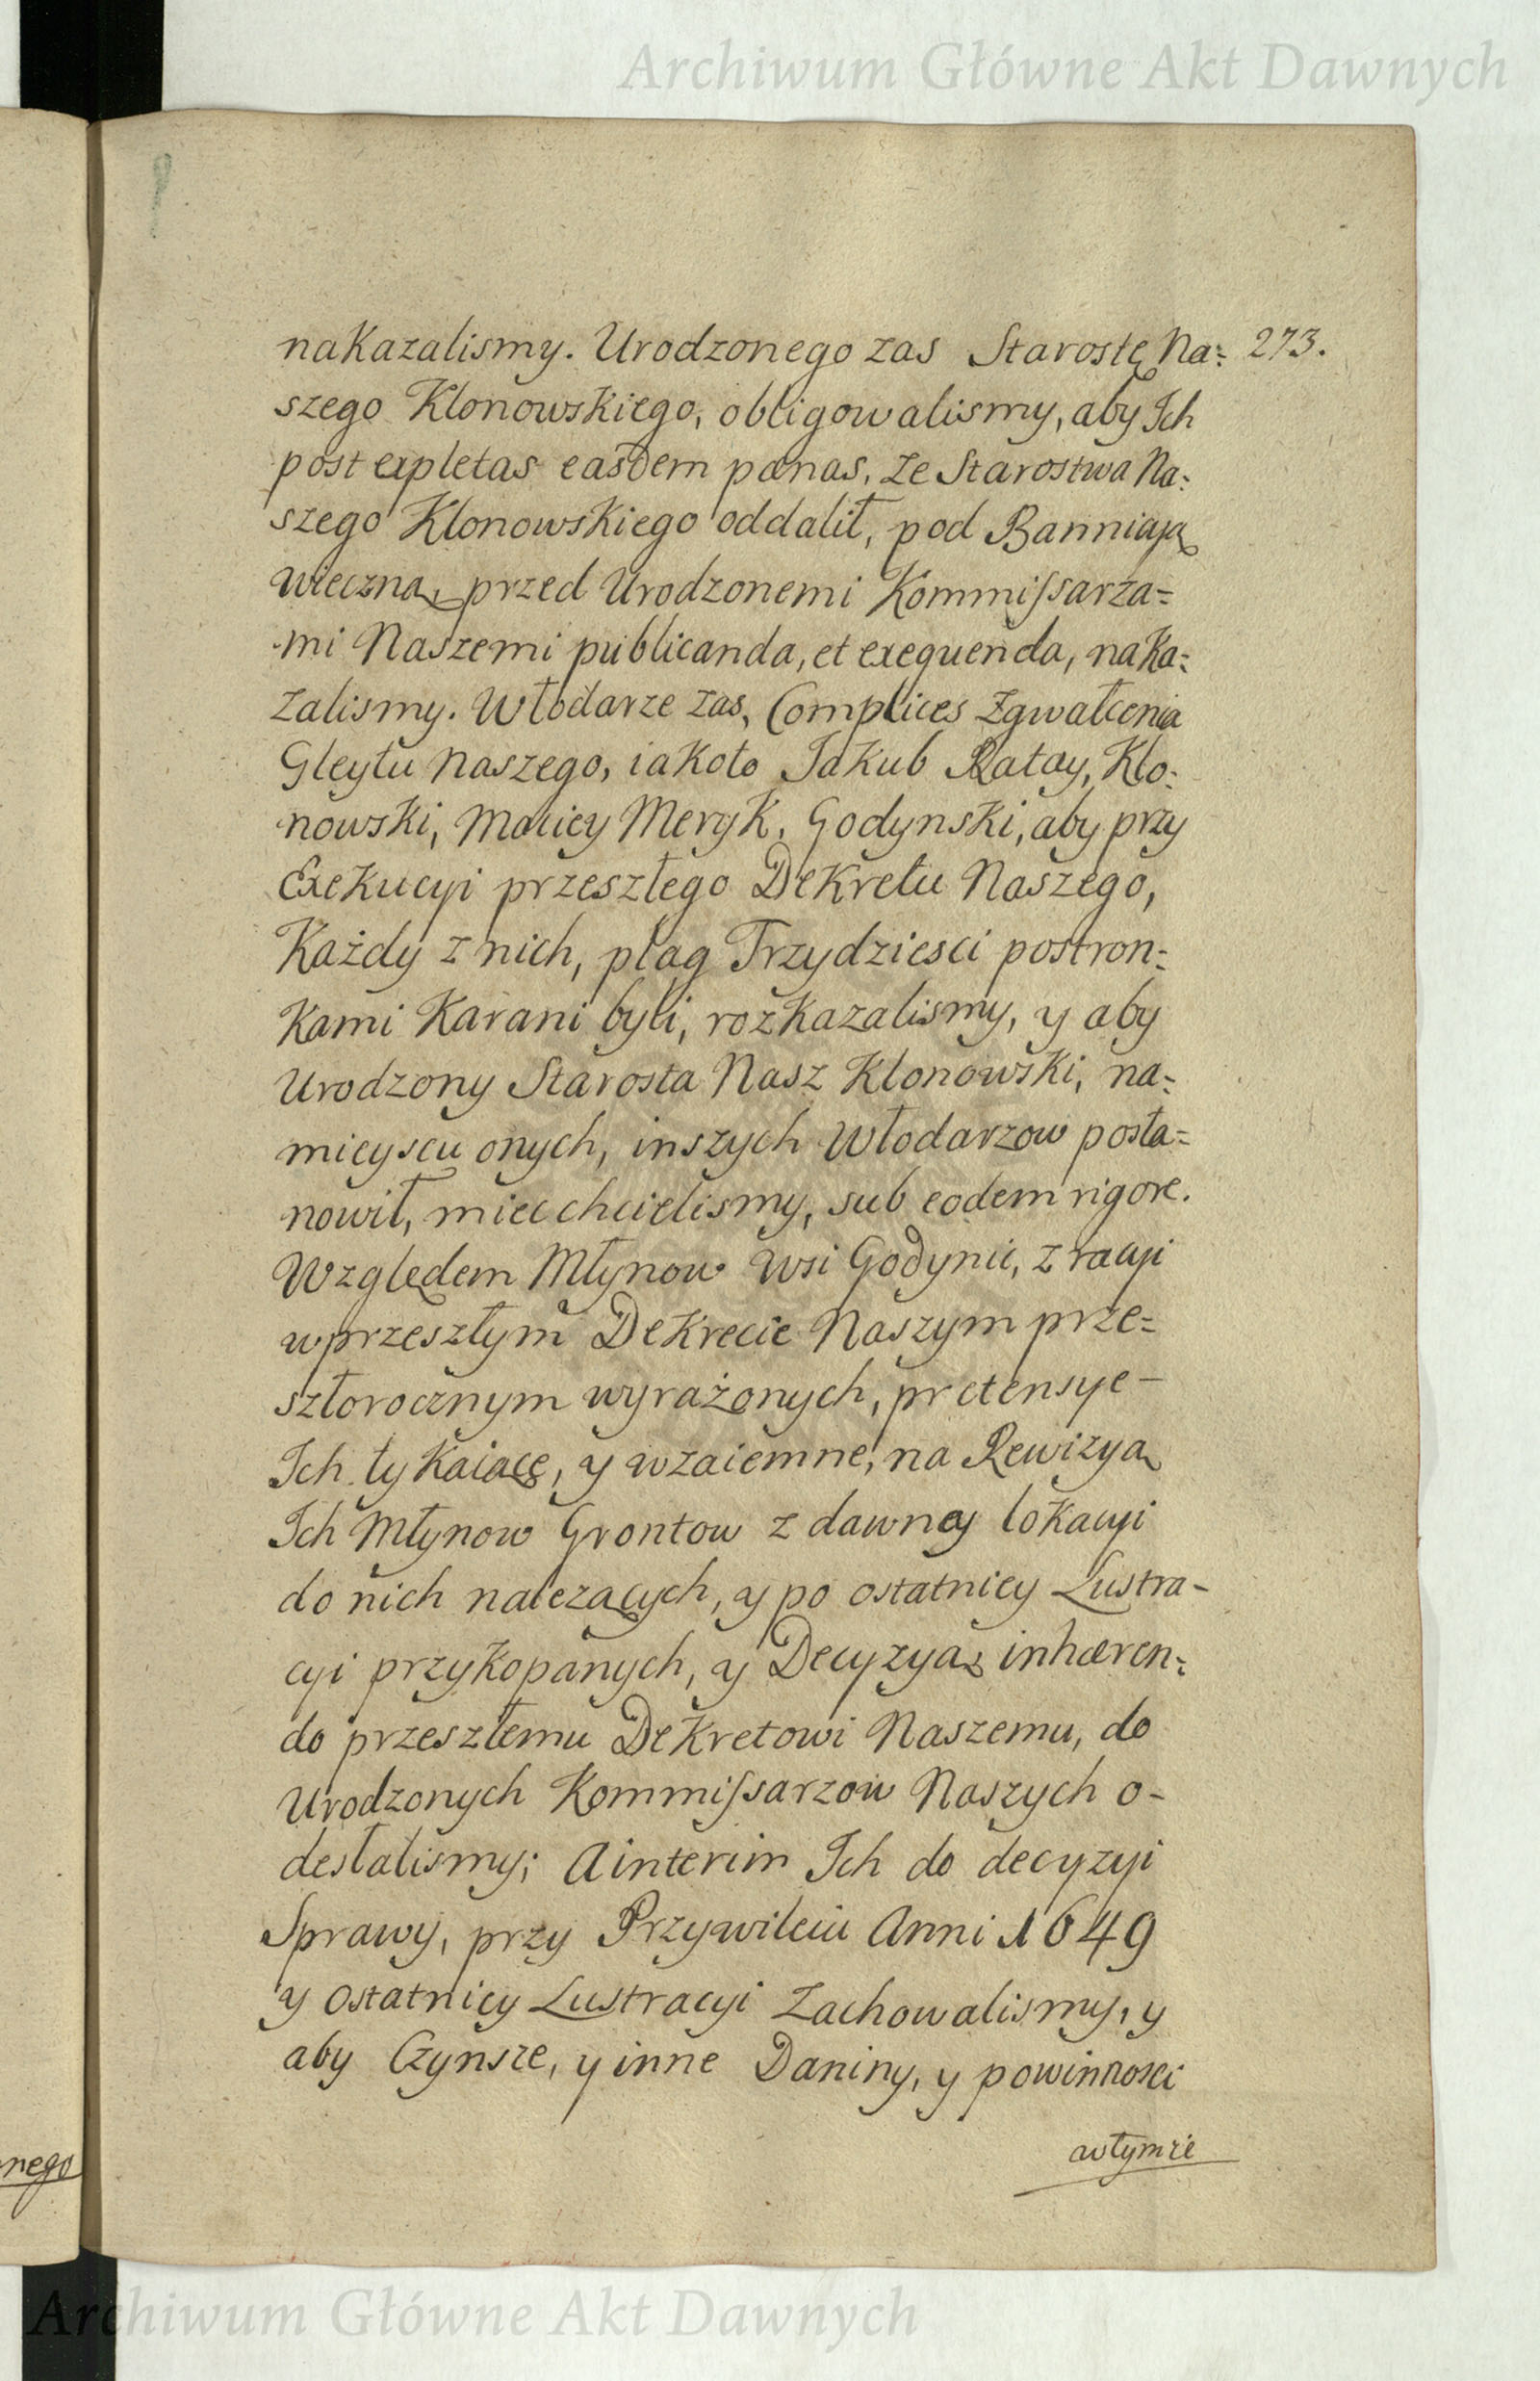 Archiwum Główne Akt Dawnych
nakazalismy. Urodzonego zas Starostę Na= 273.
szego Klonowskiego, obligowalismy, aby Ich
post expletas easdem pœnas, ze Starostwa Na=
szego Klonowskiego oddalił, pod Banniają
wieczną, przed Urodzonemi Kommissarza=
mi Naszemi publicanda, et exequenda, naka=
zalismy. Włodarze zas, Complices Zgwałcenia
Gleytu Naszego, iakoto Jakub Ratay, Klo=
nowski, Maciey Meryk, Godynski, aby przy
Exekucyi przeszłego Dekretu Naszego,
Każdy z nich, plag Trzydziesci postron=
kami karani byli, rozkazalismy, y aby
Urodzony Starosta Nasz Klonowski, na=
mieyscu onych, inszych Włodarzow posta=
nowił, miec chcielismy, sub eodem rigore.
Względem Młynow Wsi Godynic, z racyi
w przeszłym Dekrecie Naszym prze=
szłorocznym wyrażonych, pretensye
Ich tykaiącę, y wzaiemne, na Rewizyą
Ich Młynow Grontow z dawney lokacyi
do nich nalezących, y po ostatniey Lustra-
cyi przykopanych, y Decyzyą inhæren=
do przeszłemu Dekretowi Naszemu, do
Urodzonych Kommissarzow Naszych o-
desłalismy; A interim Ich do decyzyi
Sprawy, przy Przywileiu Anni 1649
y ostatniey Lustracyi Zachowalismy, y
aby Czynsze, y inne Daniny, y powinnosci
wtymże
nego
Archiwum Główne Akt Dawnych